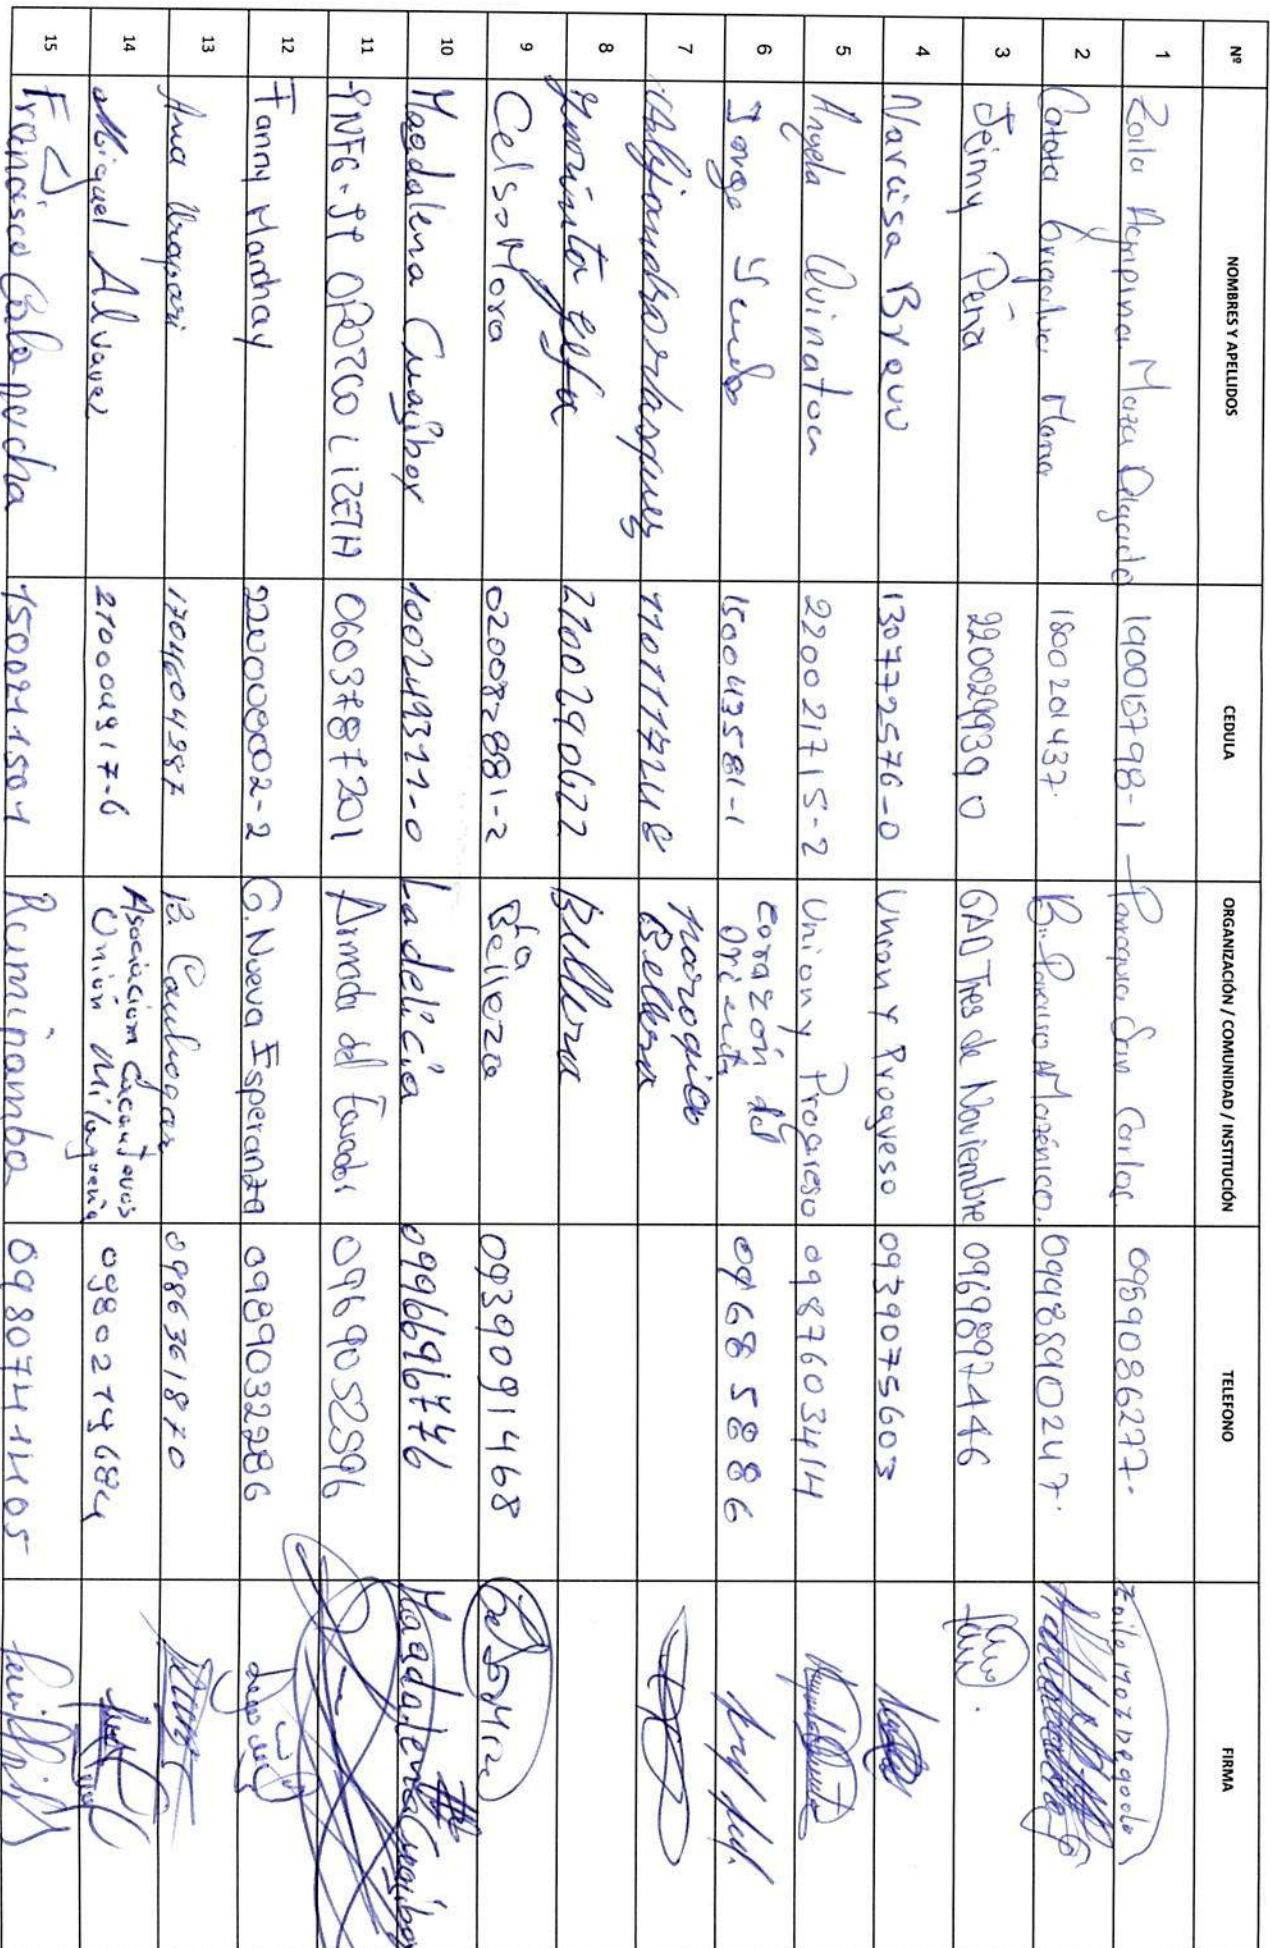 Nº NOMBRES Y APELLIDOS CEDULA ORGANIZACIÓN / COMUNIDAD / INSTITUCIÓN TELEFONO FIRMA
1 Zoila Agripina Maza Delgado 190015798-1 Parroquia San Carlos. 0959086277.
2 1800201437. B. Paraiso Amazónico. 0998890247.
3 Jeimy Peña 2200299390 GAD Tres de Noviembre 0969897446
4 Narcisa Bravo 130772576-0 Union y Progreso 0939075603
5 Angela Quinatoa 220021715-2 Union y Progreso 0987603414
6 Jorge 150043581-1 Corazón del Oriente 096858886
7 1101117248 Parroquia Belleza
8 2100290622 Belleza
9 Celso Mora 020082881-2 La Belleza 0939091468
10 Magdalena Cuaibor 100249311-0 La delicia 0996696776 Magdalena Cuaibor
11 OROZCO LIZETH 0603787201 0969052596
12 Fanny Manchay 22000002-2 G. Nueva Esperanza 0989032286
13 Ana 1704604987 B. 0986361870
14 Miguel Alvarez 210004917-6 Asociacion
Union Milagreña 0980274684
15 Francisco Calapucha 1500211501 Rumipamba 0980741405